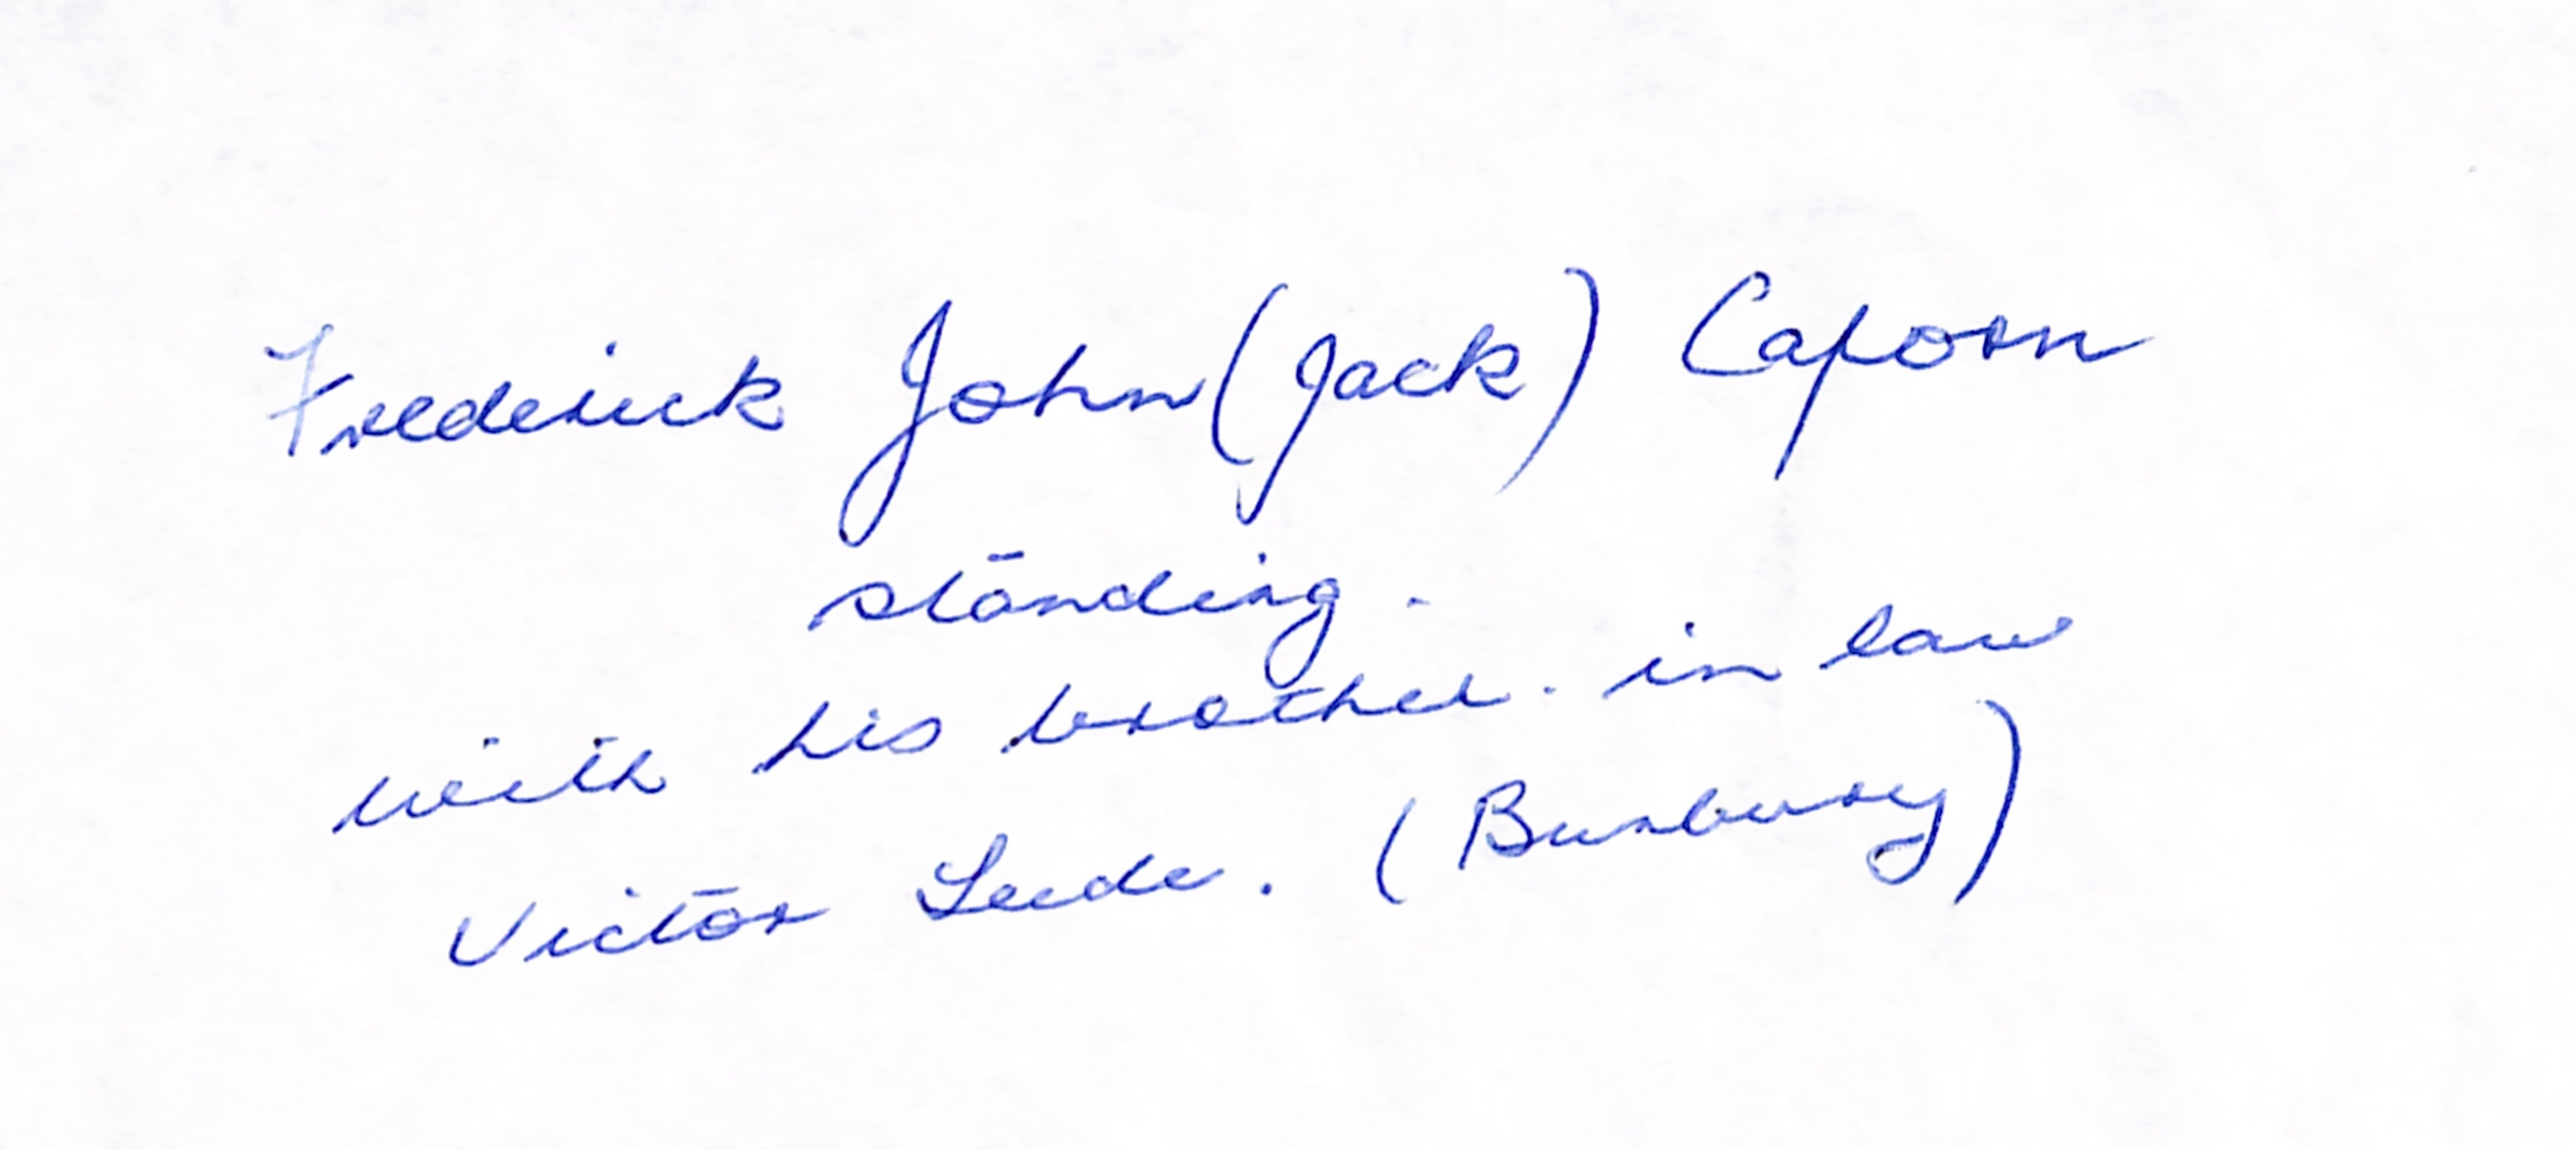 Frederick John (Jack) Caporn
standing.
with his brother. in law
Victor Leede. (Bunbury)